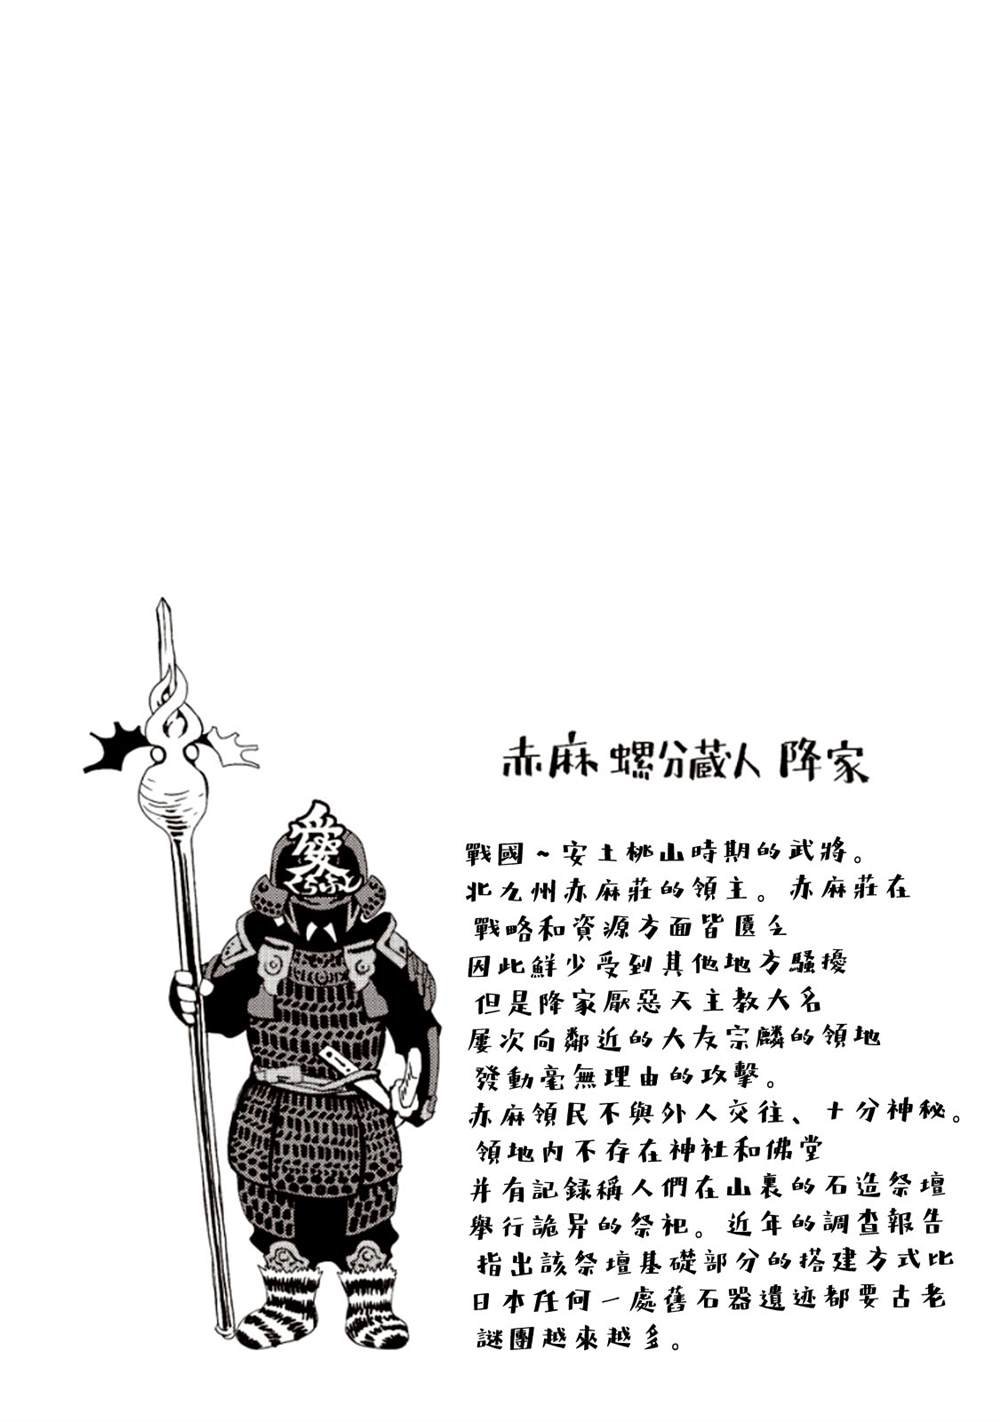 愛
くらふと
赤麻 螺分蔵人 降家
戰國~安土桃山時期的武將。
北九州赤麻莊的領主。赤麻莊在
戰略和資源方面皆匱乏
因此鮮少受到其他地方騷擾
但是降家厭惡天主教大名
屢次向鄰近的大友宗麟的領地
發動毫無理由的攻擊。
赤麻領民不與外人交往、十分神秘。
領地内不存在神社和佛堂
并有記録稱人們在山裏的石造祭壇
舉行詭异的祭祀。近年的調查報告
指出該祭壇基礎部分的搭建方式比
日本任何一處舊石器遺迹都要古老
謎團越來越多。